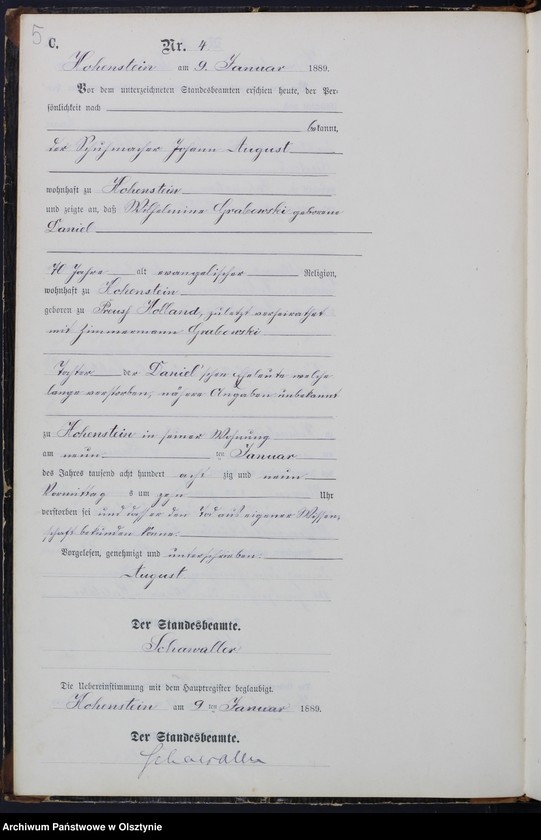 5
C.
Nr. 4
Hohenstein am 9. Januar 1889.
Vor dem unterzeichneten Standesbeamten erschien heute, der Per-
sönlichkeit nach
bekannt,
der Schuhmacher Johann August
wohnhaft zu Hohenstein
und zeigte an, daß Wilhelmine Grabowski geborene
Daniel
70 Jahre alt evangelischer Religion,
wohnhaft zu Hohenstein
geboren zu Preuß Holland, zuletzt verheirathet
mit Zimmermann Grabowski
Tochter der Daniel'schen Eheleute welche
lange verstorben, nähere Angaben unbekannt
zu Hohenstein in seiner Wohnung
am neun ten Januar
des Jahres tausend acht hundert acht zig und neun
Vormittag s um zehn Uhr
verstorben sei und daß er den Tod aus eigener Wissen-
schaft bekunden könne.
Vorgelesen, genehmigt und unterschrieben.
August
Der Standesbeamte.
Schawaller
Die Uebereinstimmung mit dem Hauptregister beglaubigt.
Hohenstein am 9 ten Januar 1889.
Der Standesbeamte.
Schawaller
Archiwum Państwowe w Olsztynie